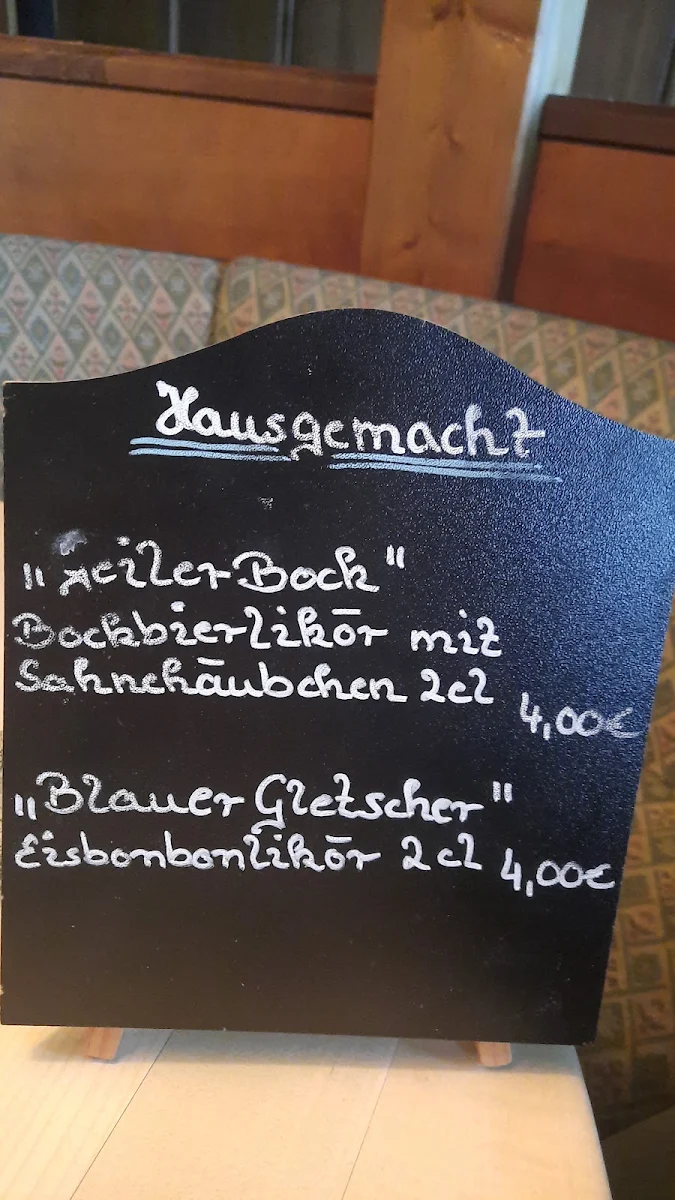 Hausgemacht
"Keiler Bock"
Bockbierlikör mit
Sahnehäubchen 2cl
4,00€
"Blauer Gletscher"
Eisbonbonlikör 2cl 4,00€